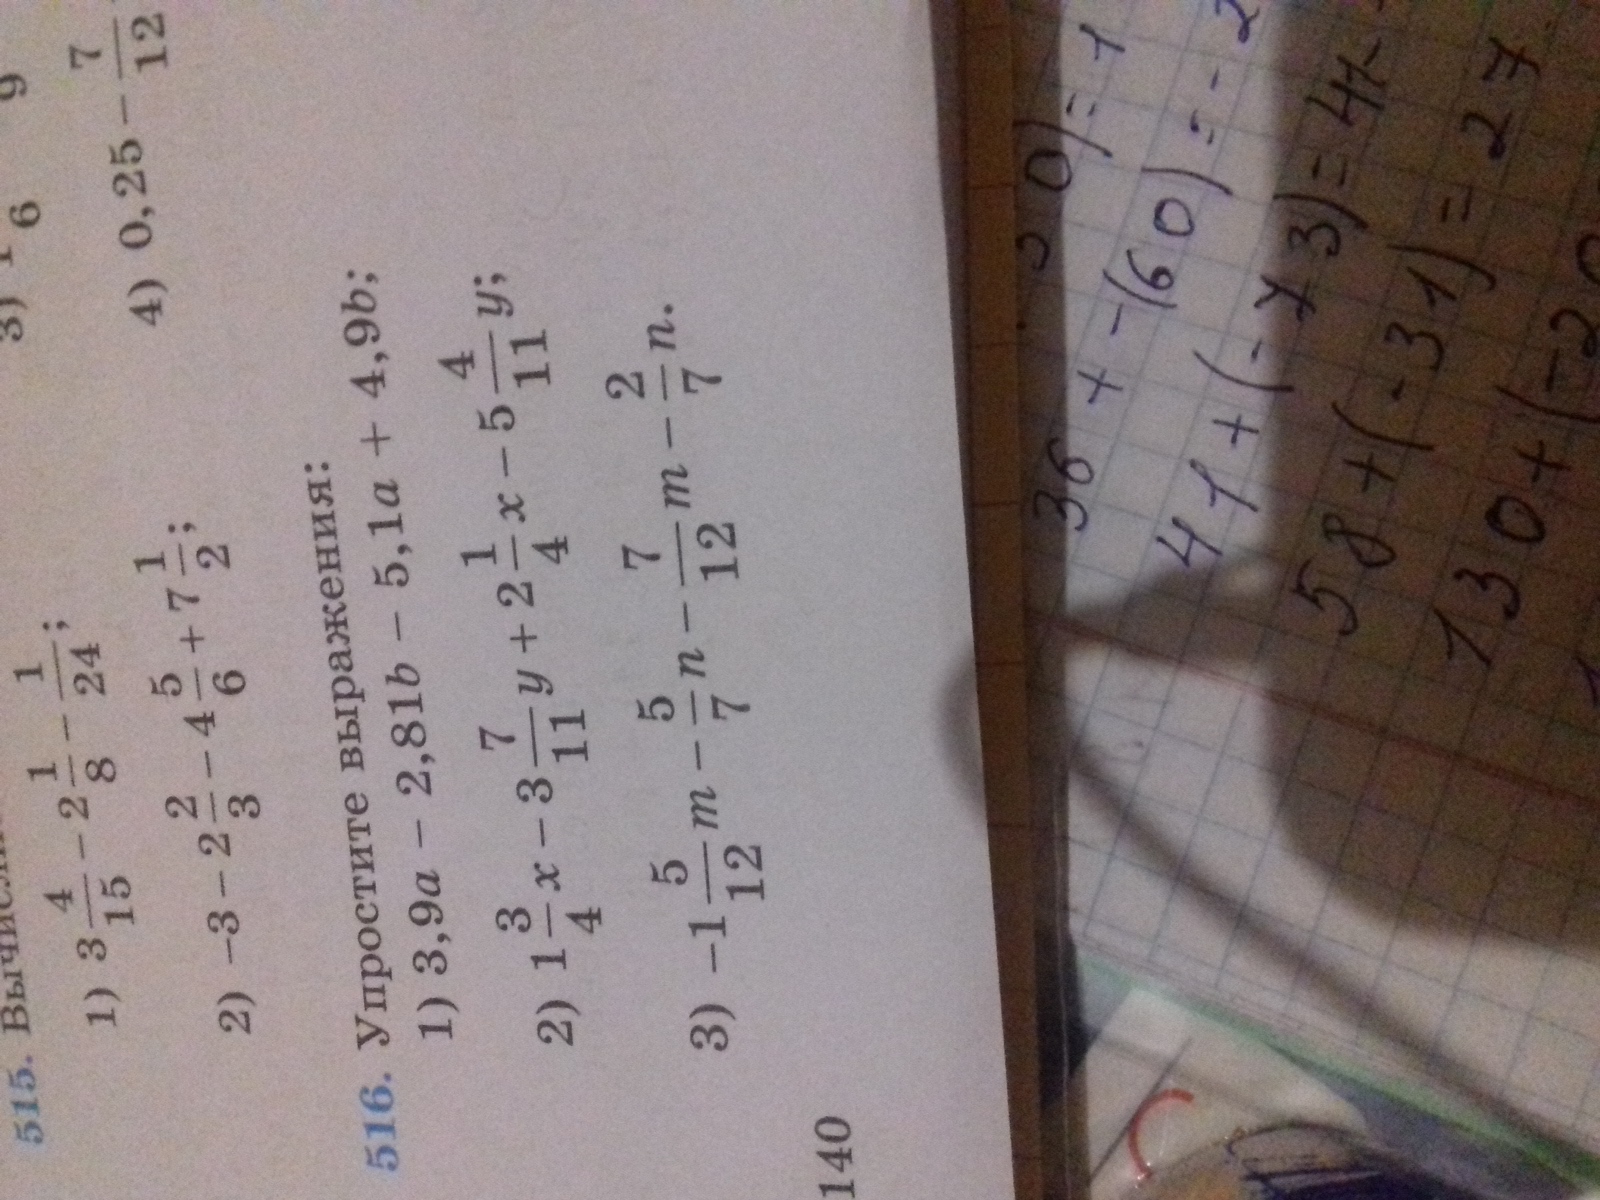 515.
1) 3 4/15 − 2 1/8 − 1/24;
2) −3 − 2 2/3 − 4 5/6 + 7 1/2;
3) 1 /6 9
4) 0,25 − 7/12
516. Упростите выражения:
1) 3,9a − 2,81b − 5,1a + 4,9b;
2) 1 3/4 x − 3 7/11 y + 2 1/4 x − 5 4/11 y;
3) −1 5/12 m − 5/7 n − 7/12 m − 2/7 n.
140
0)=1
36 + -(60) = -2
41+(-73)=41-
58+(-31)=27
130+(-20